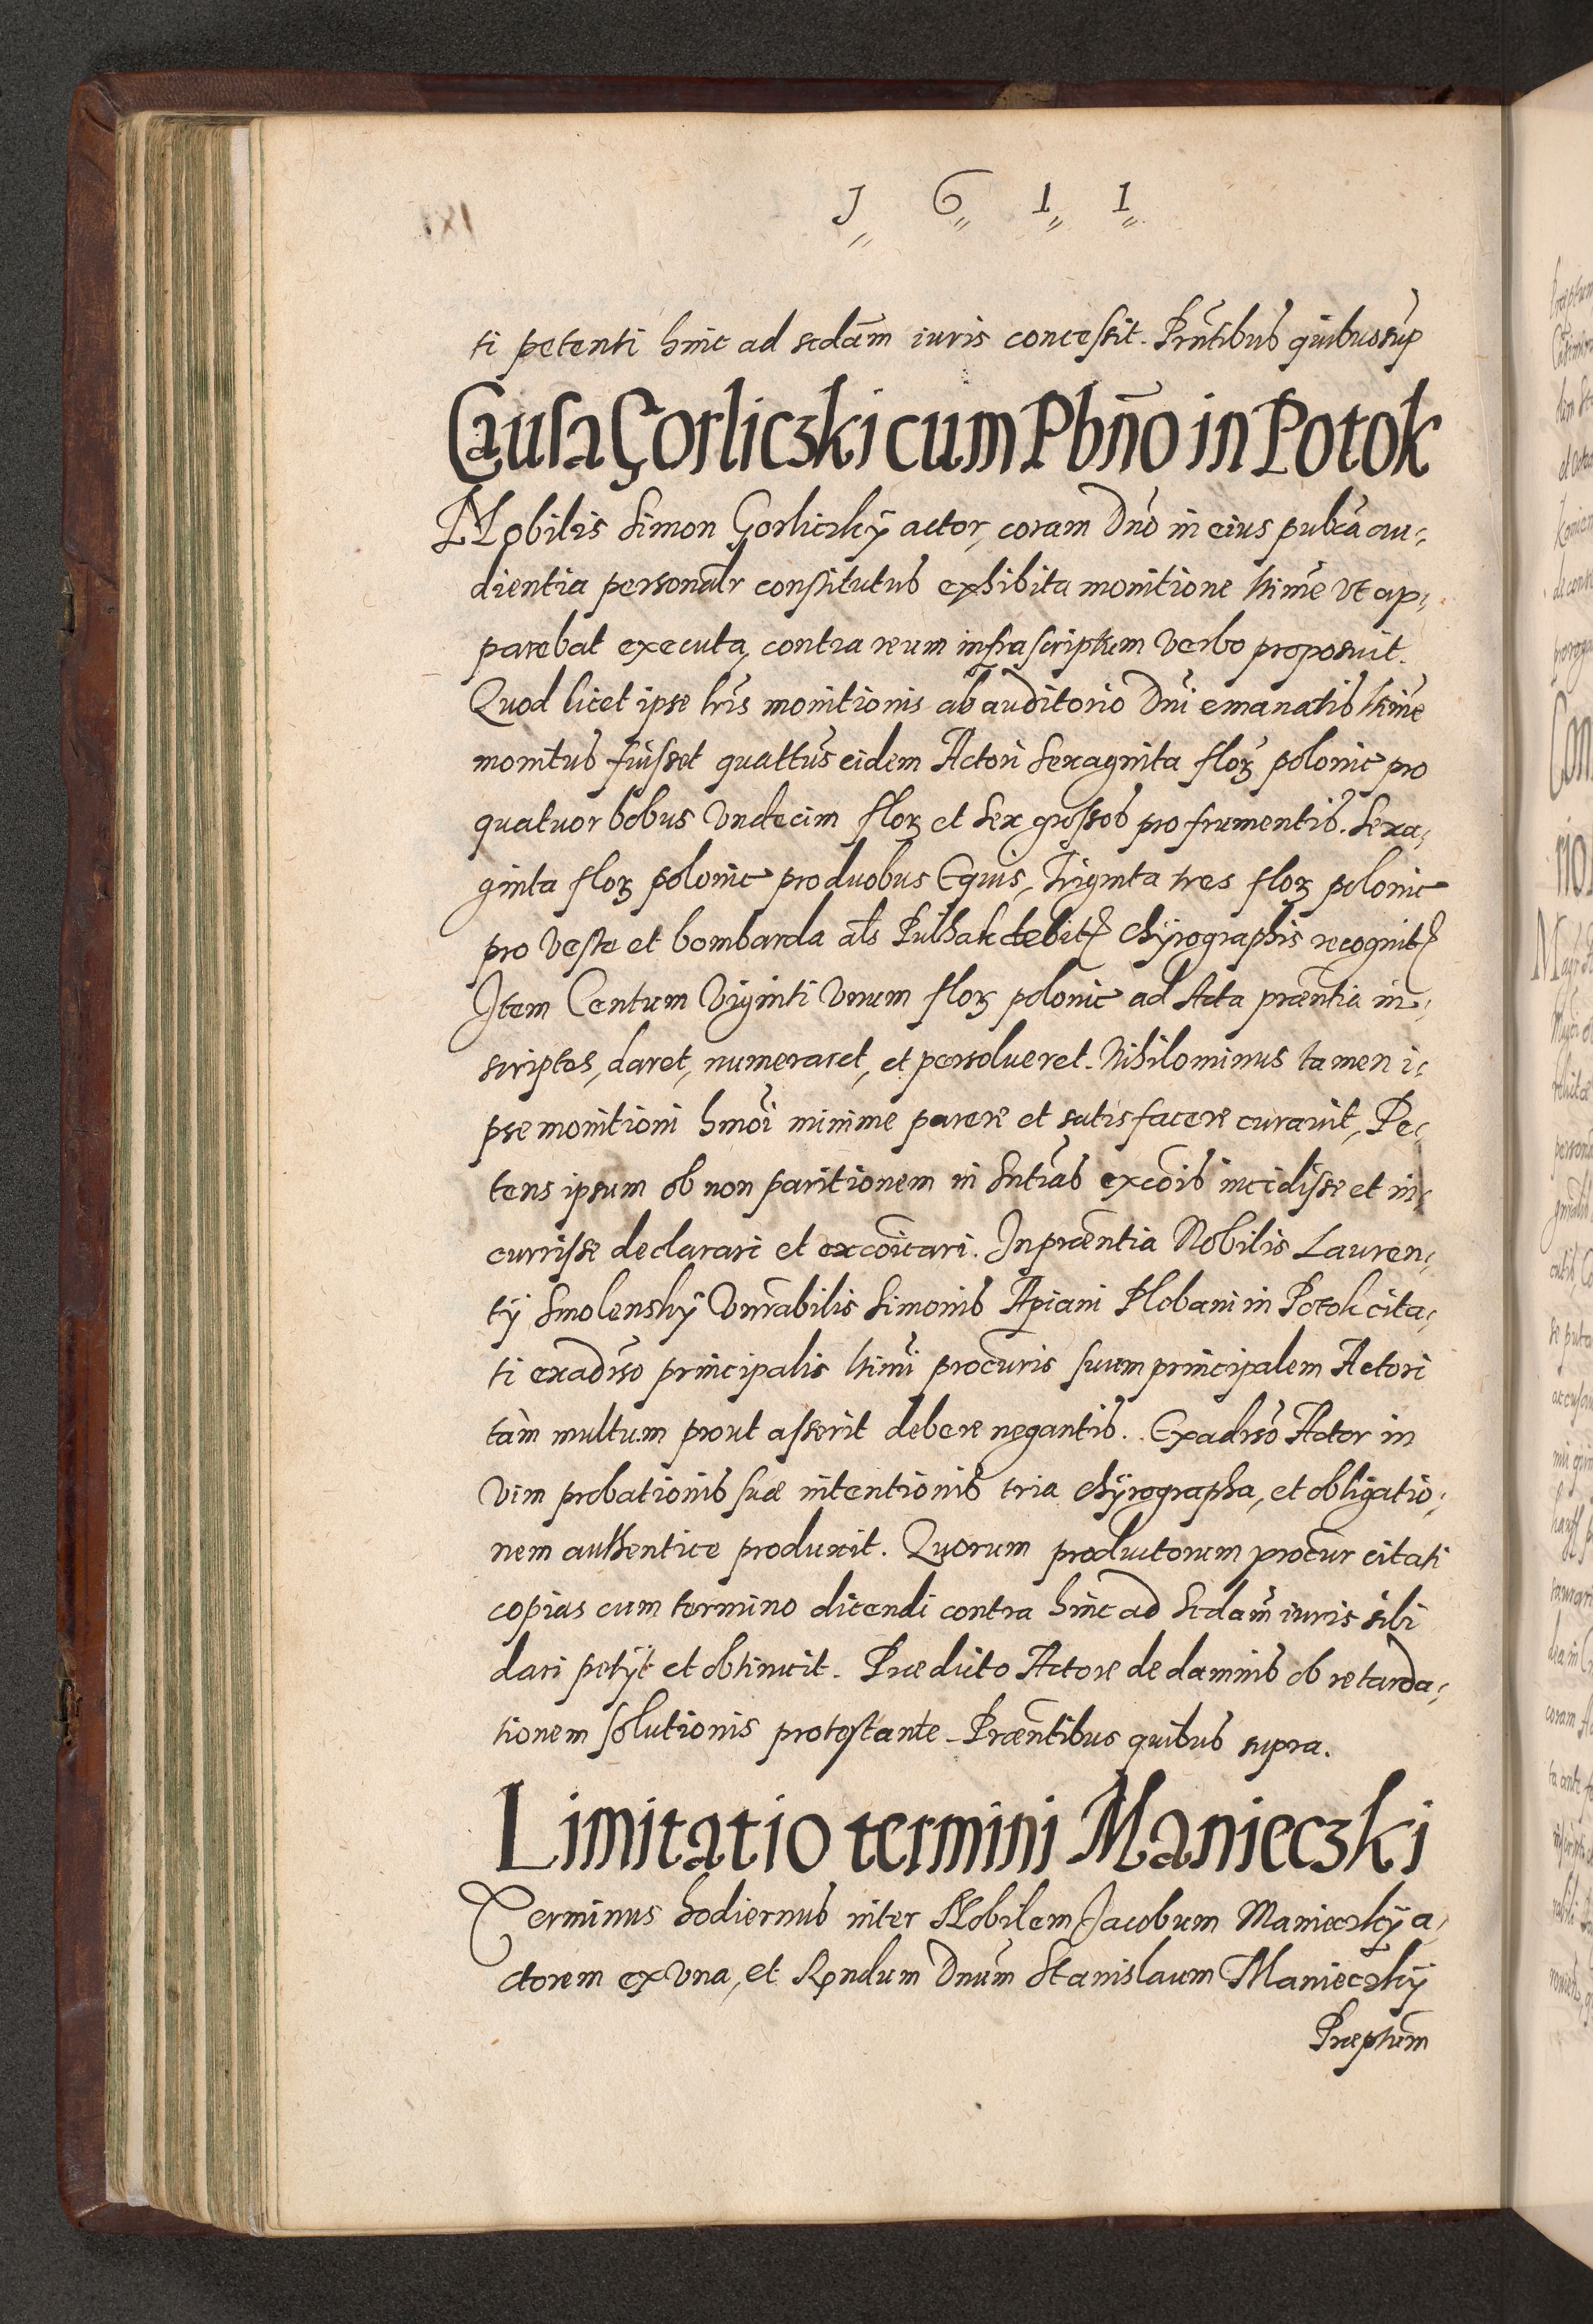 J 6 1 1
ti petenti hinc ad scdam iuris concessit. Pr̃ntibus quibus sup̃
Causa Gorliczki cum Pbño in Potok
Nobilis Simon Gorliczkÿ actor, coram Dño in eius publca au-
dientia personalr constitutus exhibita monitione ltime ut ap-
parebat executa, contra reum infrascriptum verbo proposuit.
Quod licet ipse lris monitionis ab auditorio Dñi emanatis ltime
monitus fuisset quattus eidem Actori Sexaginta flor polonic pro
quatuor bobus Undecim flor et sex grossos pro frumentis. Sexa-
ginta flor polonic pro duobus Equis, Triginta tres flor polonic
pro veste et bombarda als Pulhak debit chÿrographis recognit
Item Centum Viginti Unum flor polonic ad Acta præntia in-
scriptos, daret, numeraret, et persolueret. Nihilominus tamen i-
pse monitioni hmoi minime parere et satisfacere curauit, Pe-
tens ipsum ob non paritionem in Sntias excois incidisse et in-
currisse declarari et excoicari. In præntia Nobilis Lauren-
tÿ Smolenskÿ Vnrabilis Simonis Apiani Plobani in Potok cita-
ti exadiso principalis ltimi procuris suum principalem Actori
tàm multum prout asserit debere negantis. Exadiso Actor in
vim probationis suæ intentionis tria chÿrographa, et obligatio-
nem authentice produxit. Quorum productorum procur citati
copias cum termino dicendi contra hinc ad Scdam iuris sibi
dari petÿt et obtinuit. Prædicto Actore de damnis ob retarda-
tionem solutionis protestante. Præntibus quibus supra.
Limitatio termini Manieczki
Terminus hodiernus inter Nobilem Jacobum Manieczkÿ a-
ctorem ex una, et Rndum Dnum Stanislaum Manieczkÿ
Præptum